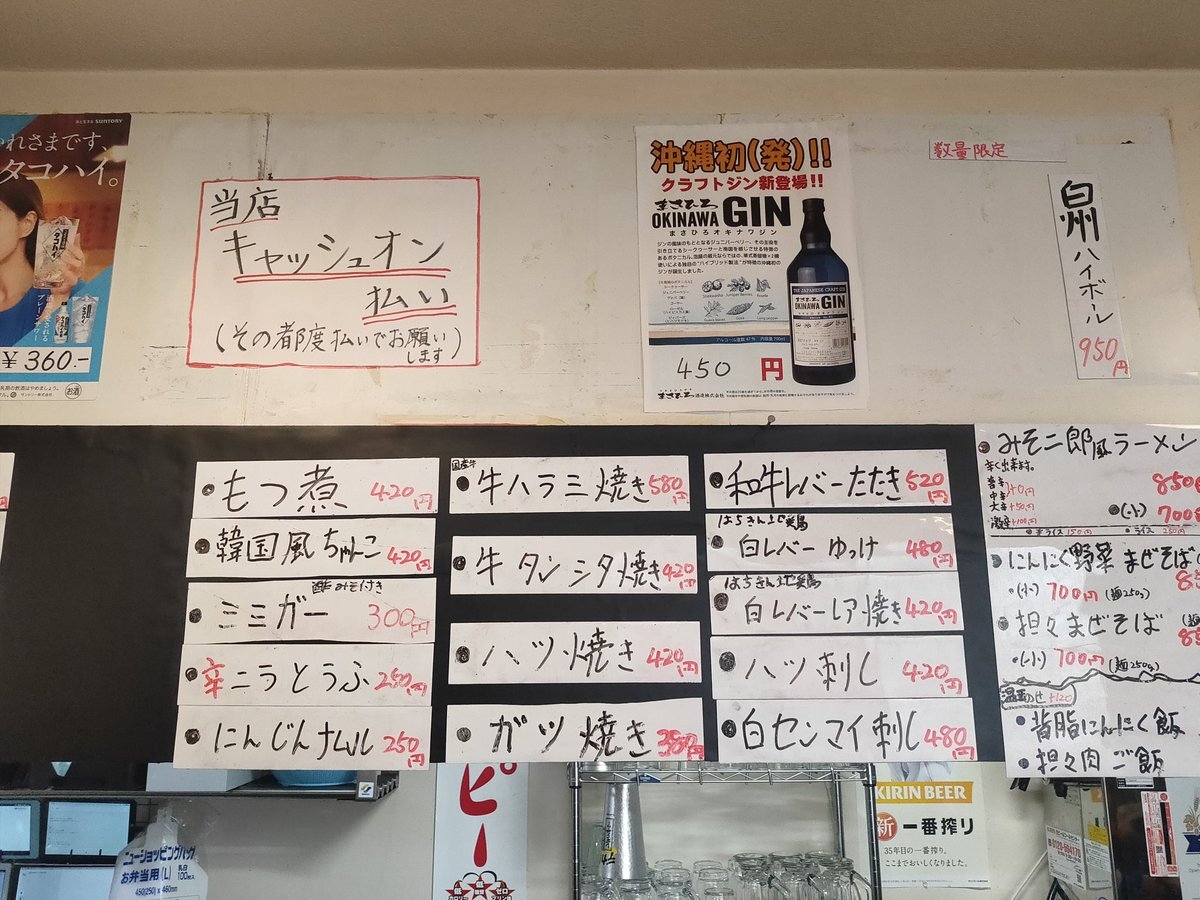 SUNTORY
れさまです、
タコハイ。
¥360.-
お酒
当店
キャッシュオン
払い
(その都度払いでお願い
します)
沖縄初(発)!!
クラフトジン新登場!!
まさひろ
OKINAWA GIN
まさひろオキナワジン
アルコール度数47%
450 円
数量限定
白州ハイボール
950円
もつ煮 420円
韓国風ちゃんこ 420円
酢みそ付き
ミミガー 300円
辛ニラとうふ 250円
にんじんナムル 250円
国産牛
牛ハラミ焼き 580円
牛タンシタ焼き 420円
ハツ焼き 420円
ガツ焼き 380円
和牛レバーたたき 520円
はちきん地鶏
白レバーゆっけ 480円
はちきん地鶏
白レバーレア焼き 420円
ハツ刺し 420円
白センマイ刺し 480円
みそ二郎風ラーメン
辛く出来ます。
850
(小) 700
半ライス150円 ・ライス250円
にんにく野菜まぜそば
・(小) 700円 (麺250g)
担々まぜそば
・(小) 700円 (麺250g)
温玉のせ +120
背脂にんにく飯
担々肉ご飯
ピー
KIRIN BEER
新 一番搾り
35年目の一番搾り。
ここまでおいしくなりました。
ニューショッピングバッグ
お弁当用(L) 乳白 100枚入
450(250)×460mm